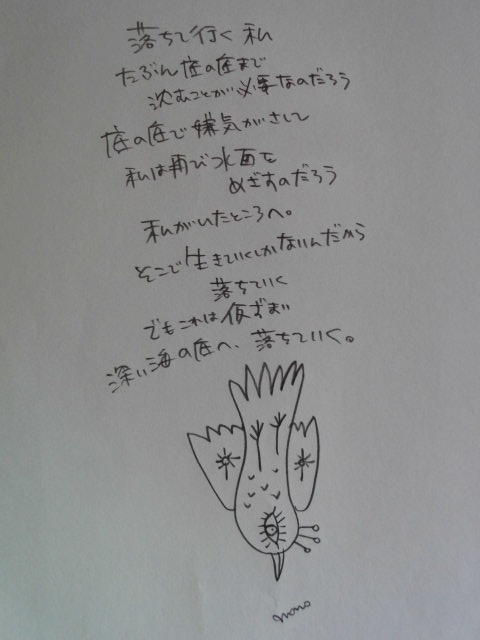 落ちて行く私
たぶん底の底まで
沈むことが必要なのだろう
底の底で嫌気がさして
私は再び水面を
めざすのだろう
私がいたところへ。
そこで生きていくしかないんだから
落ちていく
でもこれは仮ずまい
深い海の底へ、落ちていく。
momo